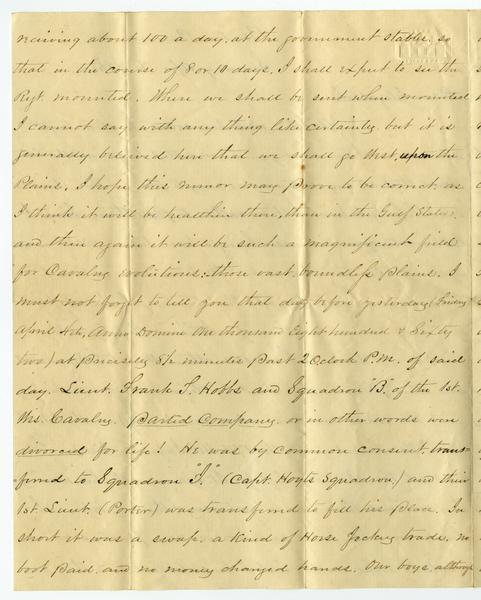 receiving about 100 a day. at the government stables. so
that in the course of 8 or 10 days, I shall expect to see the
Regt. mounted. Where we shall be sent when mounted
I cannot say with any thing like certainty. but it is
generally believed here that we shall go West, upon the
Plains. I hope this rumor may prove to be correct. as
I think it will be healthier there, than in the Gulf States.
and then again it will be such a magnificent field
for Cavalry evolutions:- those vast boundless plains. I
must not forget to tell you that day before yesterday, (Friday
April 4th, Anno Domini One thousand Eight hundred & Sixty
two) at precisely minutes past 2 O,clock P.M. of said
day. Lieut. Frank T. Hobbs and Squadron "B." of the 1st.
Wis. Cavalry. Parted Company. or in other words were
divorced for life! He was by common consent trans-
ferred to Squadron "I." (Capt. Hoyts Squadron,) and their
1st. Lieut. (Porter) was transferred to fill his place. In
short it was a swap. a kind of Horse Jockey trade. no
boot paid. and no money changed hands. Our boys, although